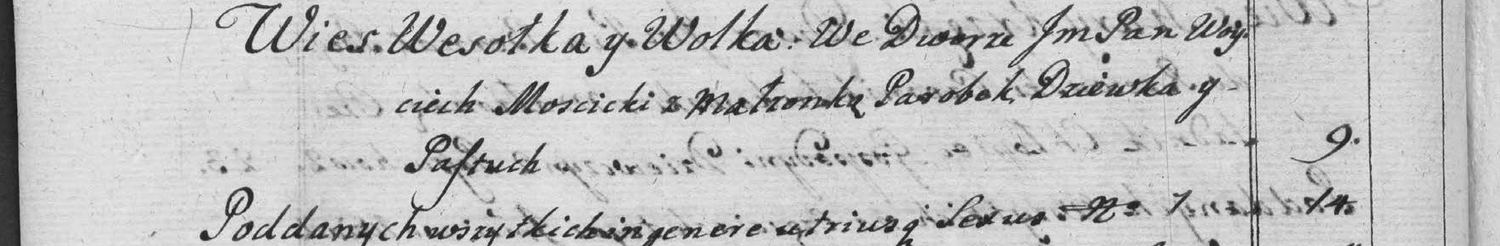 Wies Wesołka y Wolka. We Dworze Jm Pan Woy
ciech Moscicki z Małzonką Parobek Dziewka y
Pastuch 9.
Poddanych wszystkich in genere utriusq Sexus 14